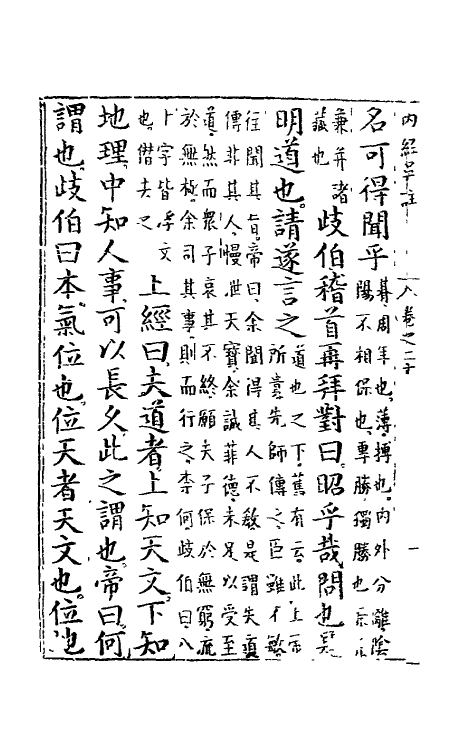 内經吴註 卷之二十 一
名可得聞乎
朞周年也薄搏也内外分離陰
陽不相保也專勝獨勝也
兼并諸
藏也
歧伯稽首再拜對曰昭乎哉問也
明道也請遂言之
道也之下舊有云此上帝
所貴先師傳之臣雖不敏
往聞其旨帝曰余聞得其人不敎是謂失道
傳非其人慢泄天寶余誠菲德未足以受至
道然而衆子哀其不終願夫子保於無窮流
於無極余司其事則而行之柰何歧伯曰八
卜字皆浮文
也僣去之
上經曰夫道者上知天文下知
地理中知人事可以長久此之謂也帝曰何
謂也歧伯曰本氣位也位天者天文也位地